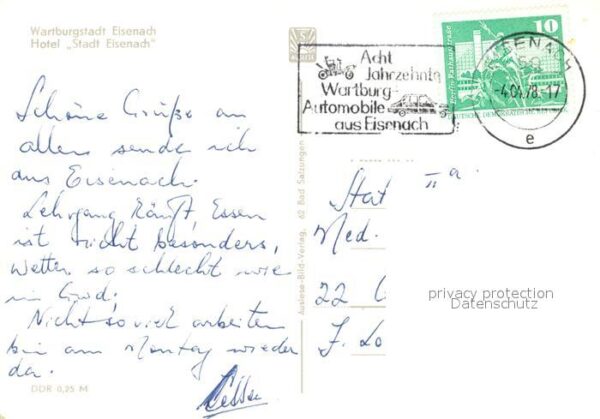 Wartburgstadt Eisenach
Hotel „Stadt Eisenach"
Schöne Grüße an
allen sende ich
aus Eisenach.
Lehrgang läuft, Essen
ist nicht besonders,
Wetter so schlecht wie
in Gwd.
Nicht soviel arbeiten
bin am Montag wieder
da.
DDR 0,25 M
Auslese-Bild-Verlag, 62 Bad Salzungen
Acht
Jahrzehnte
Wartburg-
Automobile
aus Eisenach
EISENACH
59
-4.01.78.-17
e
10
Stat IIa
Med.
22
privacy protection
Datenschutz